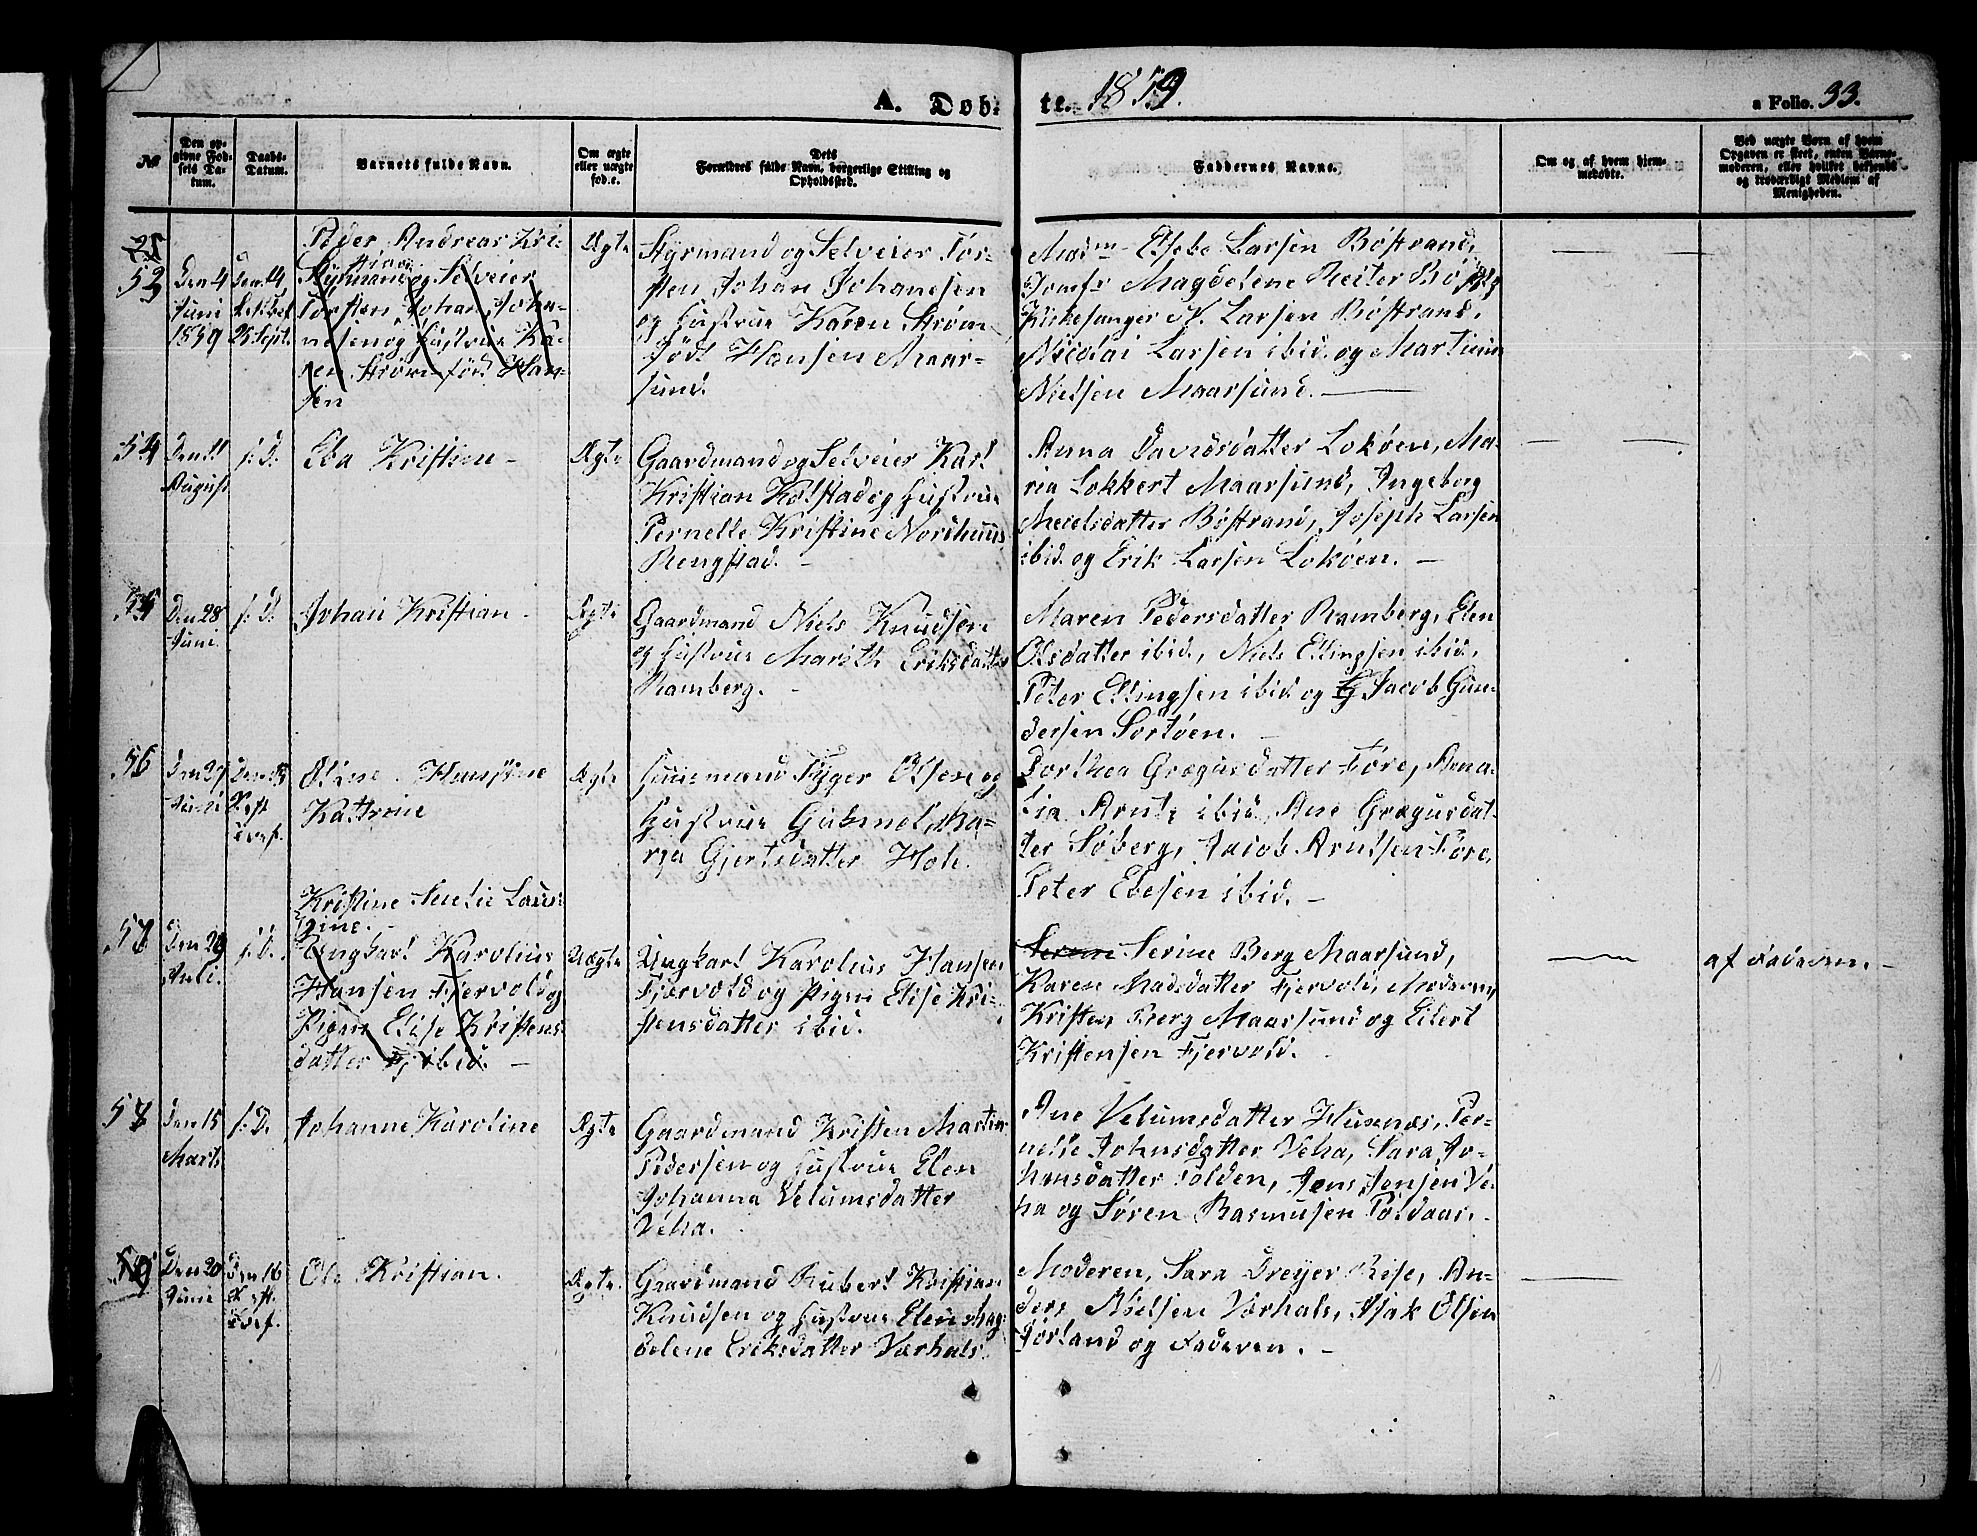 A. Døb- te. 1859.
a Folio. 33.
No
Den op-
givne Fød-
sels Da-
tum.
Daabs-
Datum.
Barnets fulde Navn.
Om ægte
eller uægte
fød.e.
Dets
Forældres fulde Navn, borgerlige Stilling og
Opholdssted.
Faddernes Navne.
Om og af hvem hjem-
medøbte.
Ved uægte Børn af hvem
Opgaven er skeet, enten Barne-
moderen, eller hvilket bekjendt
og troværdigt Medlem af
Menigheden.
53
Den 4
Juni
1859
Den 14
25 Sept.
Peder Andreas Kri-
stian
Styrmand og Selveier
Torsten Johan Joha-
nesen og Hustrue Ka-
ren Strøm fød Han-
sen
Ægte
Styrmand og Selveier Tor-
sten Johan Johanesen
og Hustrue Karen Strøm
født Hansen Maar-
sund.
Madm Elsebe Larsen Bøstrand,
Jomfr Magdelene Reiter
Kirkesanger N. Larsen Bøstrand,
Nicolai Larsen ibid. og Martinus
Nielsen Maarsund. —
54
Den 11
August
s: D:
Eba Kristien —
Ægte
Gaardmand og Selveier Karl
Kristian Kolstad og Hustrue
Pernelle Kristine Nordhuus
Rengstad. —
Anna Davidsdatter Lokøen, Ma-
ria Lokkert Maarsund, Ingeborg
Meielsdatter Bøstrand, Joseph Larsen
ibid. og Erik Larsen Lokøen. —
55
Den 28
Juni
s: D:
Johan Kristian —
Ægte
Gaardmand Niels Knudsen
og Hustrue Mareth Eriksdatter
Ramberg. —
Maren Pedersdatter Ramberg, Elen
Olsdatter ibid., Niels Ellingsen ibid,
Peter Ellingsen ibid og Jacob Gun-
dersen Sortøen. —
56
Den 27
Juni
Oline Hansine
Katrine
Ægte
Huusmand Tyger Olsen og
Hustrue Gubenel Ma-
rja Gjertsdatter Hole
Dorthea Gregusdatter Føre, Ama-
lia Arntz ibid, Ane Gregusdat-
ter Søberg, Jacob Arntsen Føre,
Peter Ebesen ibid. —
57
Den 29
Juli.
s: D.
Kristine Amelie Laur-
gine. —
Ungkarl Karolius
Hansen Fjervold og
Pigen Elise Kristens-
datter Fj ibid. —
Uægte
Ungkarl Karolius Hansen
Fjærvold og Pigen Elise Kri-
stensdatter ibid.
Serine Berg Maarsund,
Karen Madsdatter Fjervold, Moderen,
Kristen Berg Maarsund og Eilert
Kristensen Fjervold.
af Faderen. —
58
Den 15
Marts
s: D.
Johanne Karoline
Ægte
Gaardmand Kristen Martin
Pedersen og Hustrue Elen
Johanna Velumsdatter
Veha.
Ane Velumsdatter Husnæs, Per-
nelle Johnsdatter Veha, Sara Jo-
hansdatter Folden, Jens Jensen Ve-
ha og Søren Rasmusen
59
Den 20
Juni
Den 16
Ole Kristian.
Ægte.
Gaardmand Hubert Kristian
Knudsen og Hustrue Elen Mag-
delene Eriksdatter Værhals.
Moderen, Sara Dreyer Rise, An-
ders Nielsen Værhals, Isak Olsen
Jorland og Faderen. —